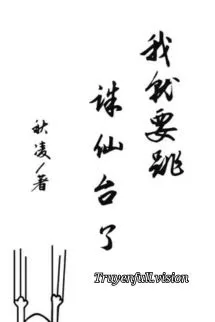 我就要跳
诛仙台了
秋凌/著
Truyenfull.vision